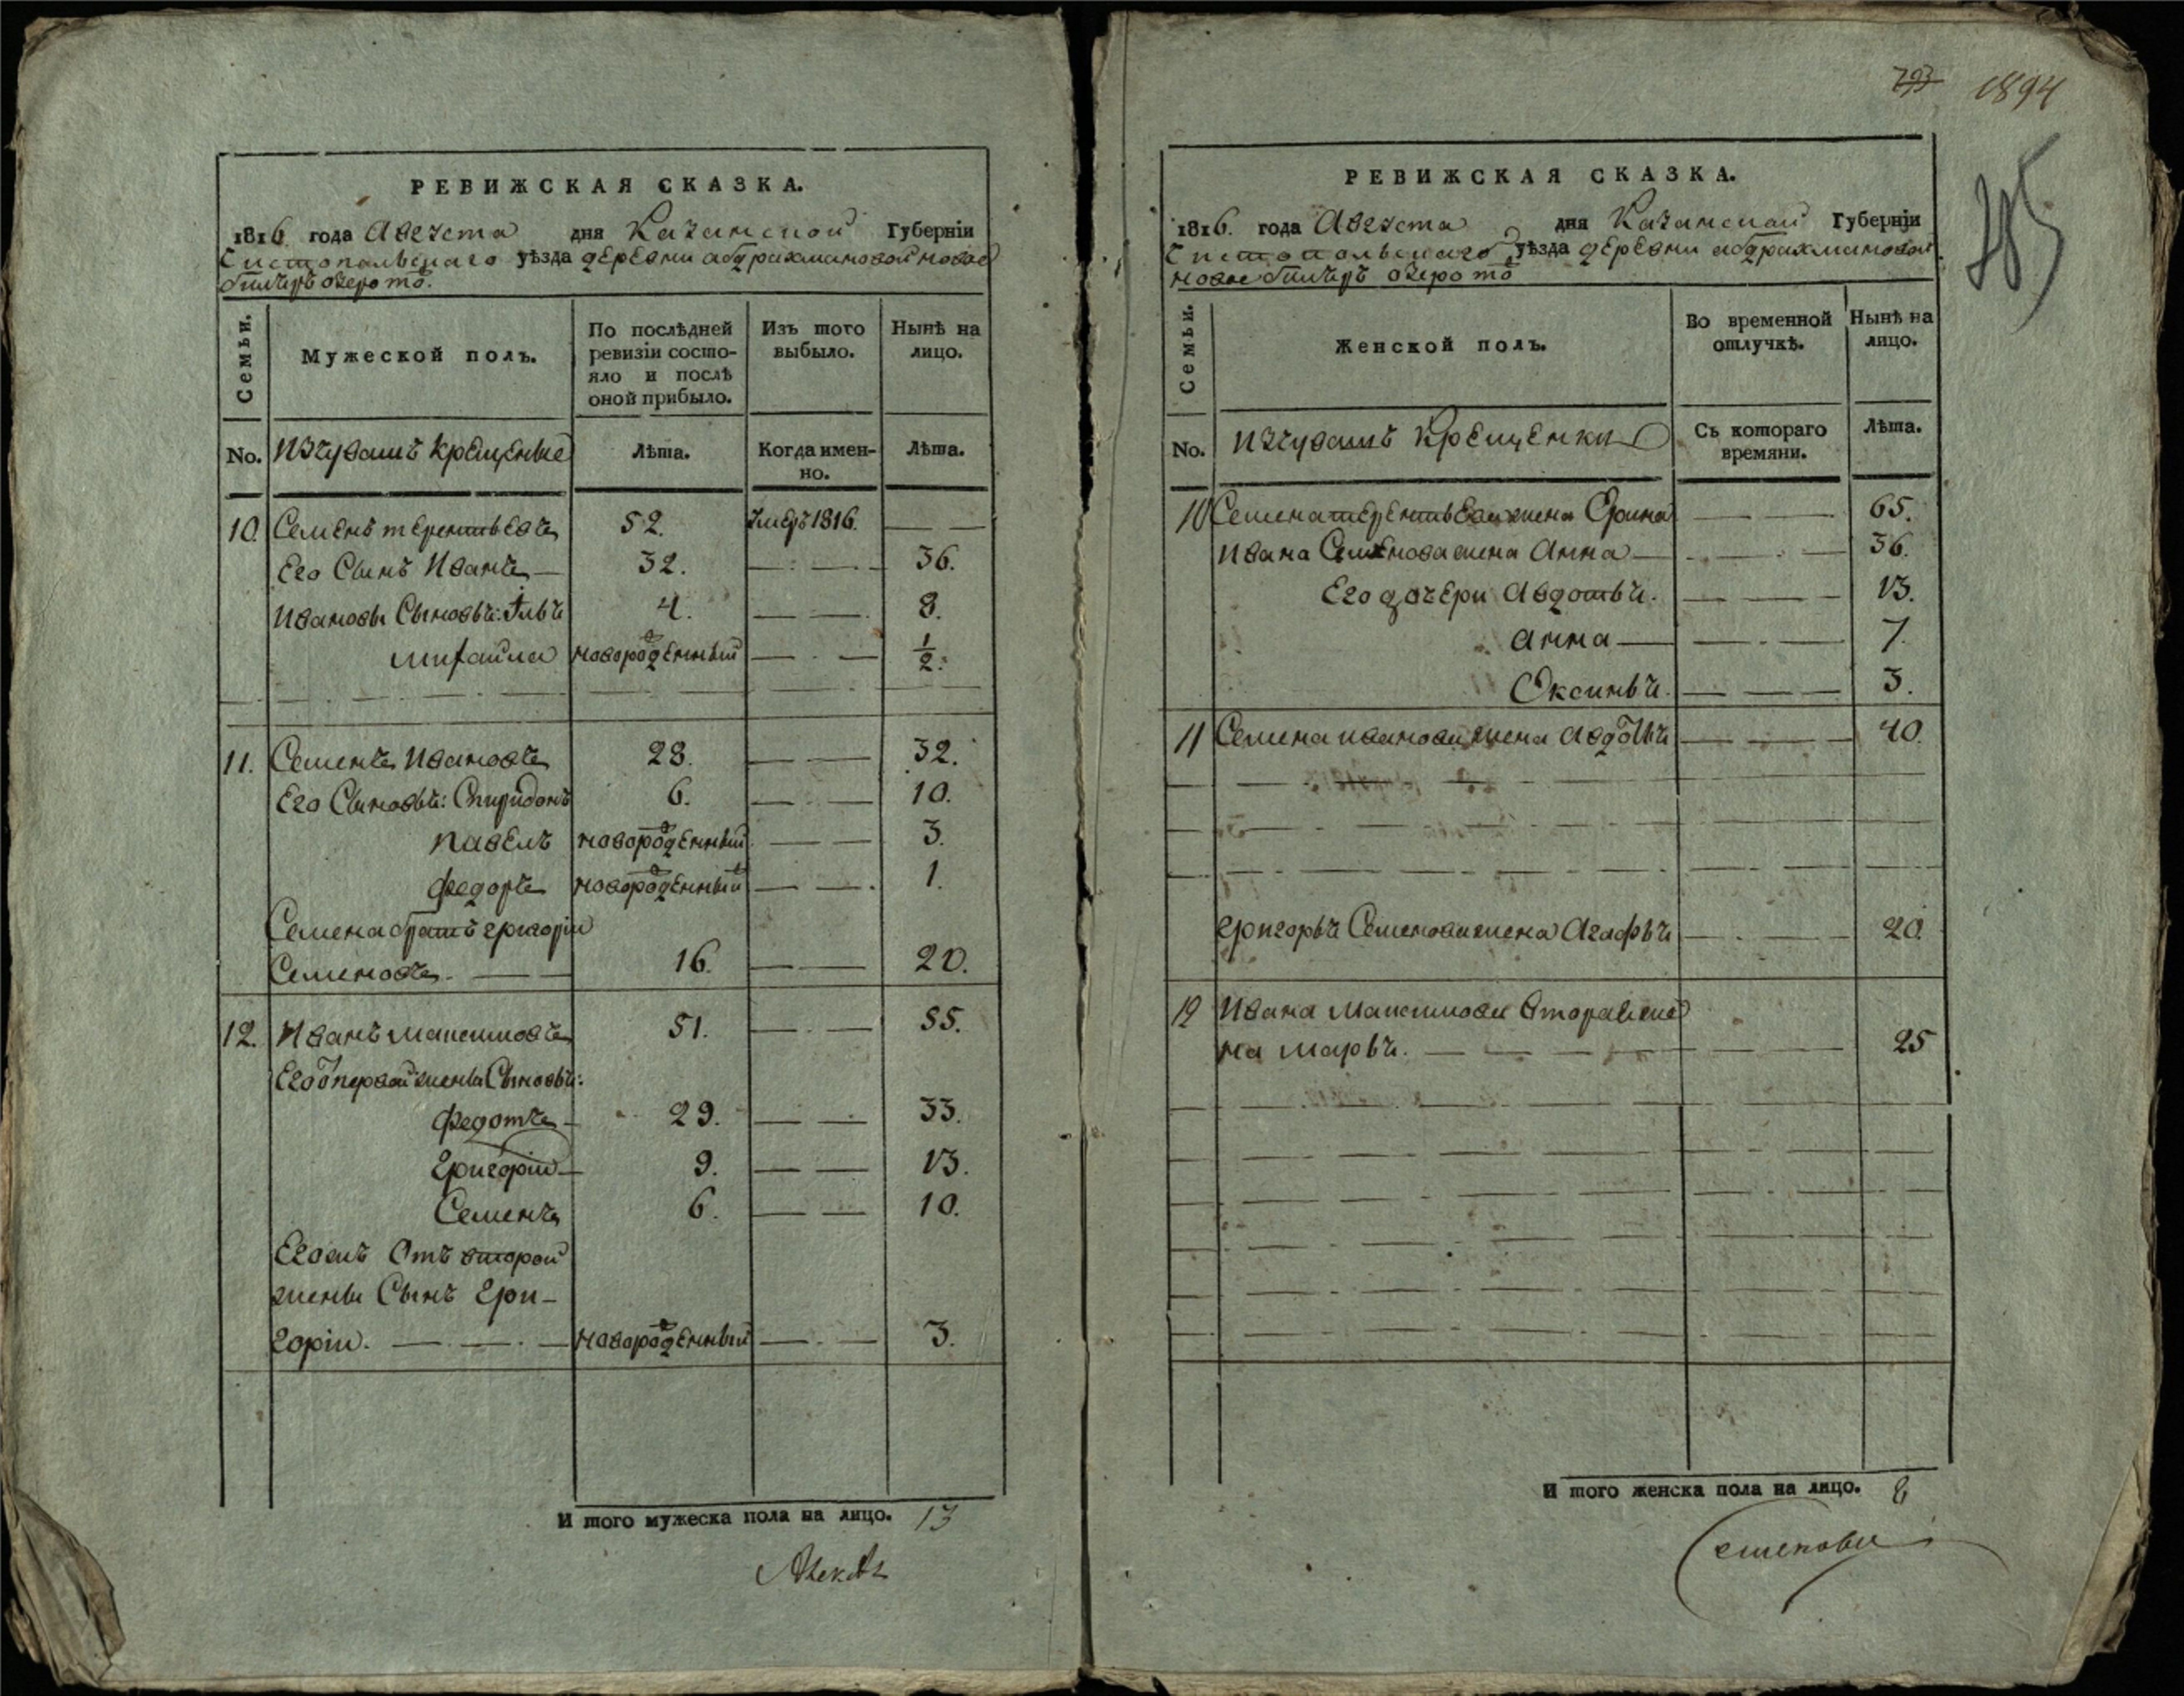 793 1894
285
РЕВИЖСКАЯ СКАЗКА.
1816 года Августа дня Казанской Губерніи
Чистопольскаго уѣзда деревни абдрахмановой новое
билъръ озеро тоⷤ.
Семьи.
Мужеской полъ.
По послѣдней ревизіи состо-яло и послѣ оной прибыло.
Изъ того выбыло.
Нынѣ на лицо.
No. Изчувашъ крещеные Лѣта. Когда имен-но. Лѣта.
10. Семенъ терентьевъ 52. Умеръ 1816. — —
Его Сынъ Иванъ — 32. — — 36.
Ивановы Сыновья: Илья 4. — — 8.
михайла новорожденный — — 1/2.
11. Семенъ Ивановъ 28. — — 32.
Его Сыновья: Спиридонъ 6. — — 10.
павелъ новорожденный — — 3.
федоръ новорожденный — — 1.
Семена братъ григорій
Семеновъ. — 16. — — 20.
12. Иванъ максимовъ 51. — — 55.
Его ѿ первой жены Сыновья:
федотъ — 29. — — 33.
григорій — 9. — — 13.
Семенъ 6. — — 10.
Егожъ Отъ второй
жены Сынъ гри-
горій. — — новорожденный — — 3.
И того мужеска пола на лицо. 13
РЕВИЖСКАЯ СКАЗКА.
1816. года Августа дня Казанской Губерніи
Чистопольскаго уѣзда деревни абдрахмановой
новое билъръ озеро тоⷤ
Семьи.
Женской полъ.
Во временной отлучкѣ.
Нынѣ на лицо.
No. изчувашъ крещенки Съ котораго времяни. Лѣта.
10 Семена терентьева жена Орина — — 65.
Ивана Семенова жена Анна — — — 36.
Его дочери Авдотья. — — 13.
Анна — — — 7.
Оксинья. — — 3.
11 Семена иванова жена Авдотья — — 40.
григорья Семенова жена Агафья — — 20.
12 Ивана Максимова Вторая же
на марья. — — — 25
И того женска пола на лицо. 8
Семенова